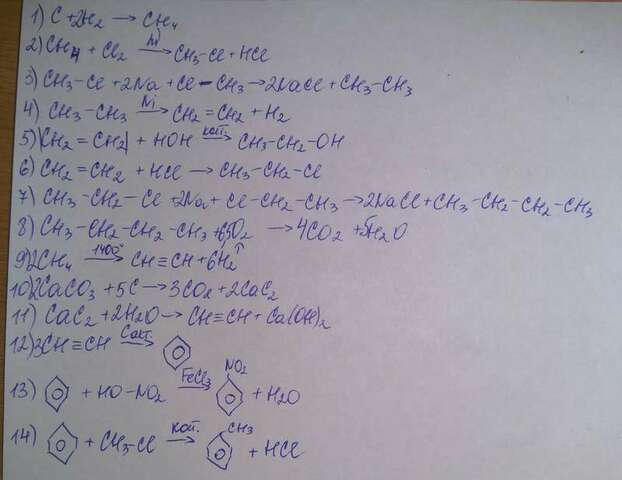 1) C + 2H2 → CH4
2) CH4 + Cl2 → CH3-Cl + HCl
3) CH3-Cl + 2Na + Cl-CH3 → 2NaCl + CH3-CH3
4) CH3-CH3 Ni→ CH2=CH2 + H2
5) CH2=CH2 + HOH кат.→ CH3-CH2-OH
6) CH2=CH2 + HCl → CH3-CH2-Cl
7) CH3-CH2-Cl + 2Na + Cl-CH2-CH3 → 2NaCl + CH3-CH2-CH2-CH3
8) CH3-CH2-CH2-CH3 + 6,5O2 → 4CO2 + 5H2O
9) 2CH4 1400°→ CH≡CH + 6H2↑
10) 2CaCO3 + 5C → 3CO2 + 2CaC2
11) CaC2 + 2H2O → CH≡CH + Ca(OH)2
12) 3CH≡CH Cакт.→
13) + HO-NO2 FeCl3→ NO2 + H2O
14) + CH3-Cl кат.→ CH3 + HCl